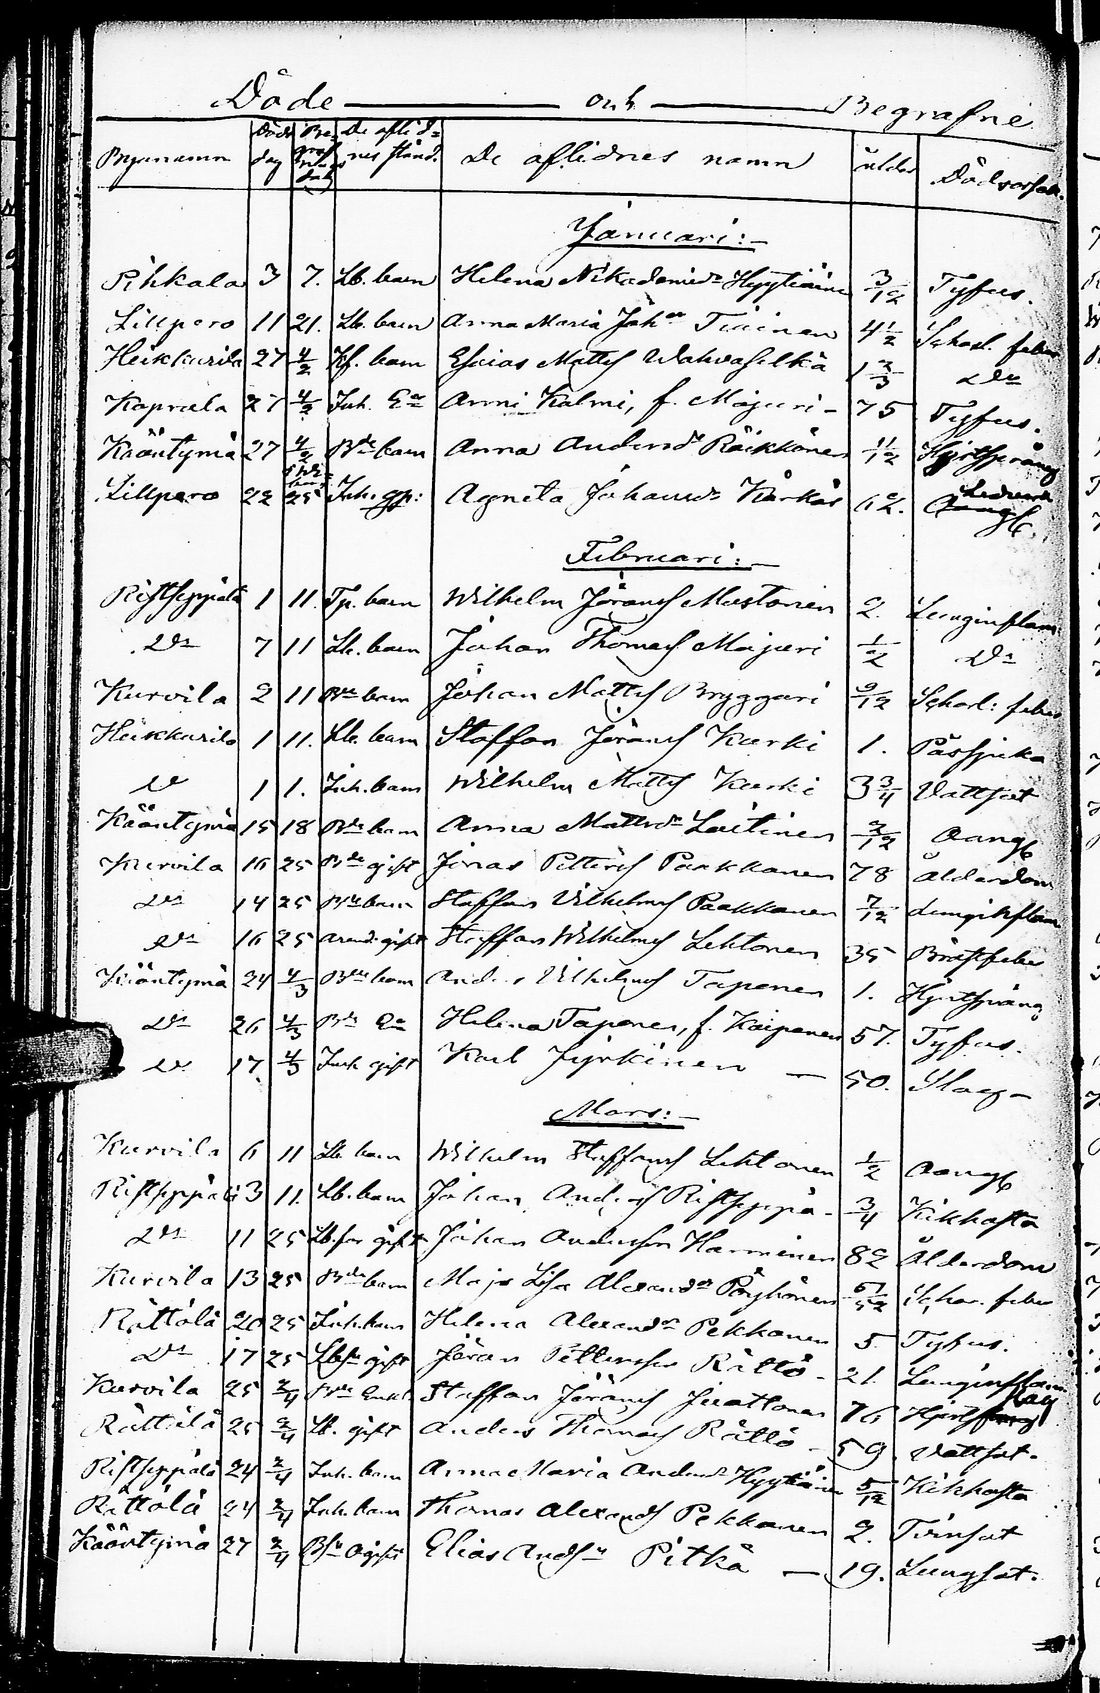 Döde och Begrafne
Byanamn Döds dag Begrafnings dag De aflidnes stånd. De aflidnes namn ålder Dödsorsak.
Januari:-
Pihkala 3 7. Lb. barn Helena Nikodemid:r Hyytiäinen 3/12 Tyfus.
Lillpero 11 21. Lb. barn Anna Maria Joh:dr Tiainen 4 1/2 Scharl. feber
Heikkurila 27 4/2 barn Esaias Matts 1 2/3 D:o
Kaprala 27 4/2 Inh. E:a Anni Kalmi, f. Majuri - 75 Tyfus.
Kääntymä 27 4/2 B:de barn Anna Andersd:r Räikkönen 1/12 Hjertsprång
Lillpero 22 25 Inh. Agneta Johansd:r Kärkäs 62.
Februari:-
Ristseppälä 1 11. Tp. barn Wilhelm Jörans Mustonen 2. Lunginflam
D:o 7 11 Lb. barn Johan Thomas Majuri 1/2 D:o
Kurvila 2 11 B:de barn Johan Matts Bryggari 9/12 Scharl: feber
Heikkurila 1 11. Lb. barn Staffan Jörans Kurki 1. Påssjuka
D:o 1 1. Inh. barn Wilhelm Matts Kurki 3 3/4 Vattsot
Kääntymä 15 18 B:de barn Anna Mattsd:r Laitinen 2/12 Oang.
Kurvila 16 25 B:de gift Jonas Petters Paakkonen 78 Ålderdom
D:o 14 25 B:de barn Staffan Vilhelms Paakkonen 7/12 Lunginflam
D:o 16 25 Arend. gift Staffan Wilhelms Lehtonen 35 Bröstfeber
Kääntymä 24 4/3 B:de barn Vilhelms Taponen 1. Hjertsprång
D:o 26 4/3 B:de E:a Helena Taponen, f. Kaipanen 57. Tyfus.
D:o 17. 4/3 Inh gift Karl Jyrkinen — 50. Slag -
Mars:-
Kurvila 6 11 Lb. barn Wilhelm Staffans Lehtonen 1/2 Oang.
Ristseppälä 3 11. Lb. barn Johan Anders Ristseppä - 3/4 Kikhosta
D:o 11 25 gift Johan Andersson Harminen 82 Ålderdom
Kurvila 13 25 B:de barn Maja Lisa Alexand:dr Pöyhönen Schar. feber
Rättölä 20 25 Inh. barn Helena Alexand:dr Pekkonen 5. Tyfus.
D:o 17 25 gift Jöran Pettersson Rättö - 21. Lunginflam
Kurvila 25 2/4 B:de Enkl. Staffan Jörans 76 Slag
Rättölä 25 2/4 Lb. gift Anders Thomas Rättö - 59. Vattsot.
Ristseppälä 24 2/4 Inh. barn Anna Maria Andersd:r Hyytiäinen 5/12 Kikhosta
Rättölä 24 2/4 Inh. barn Thomas Alexands Pekkonen 2. Tvinsot
Kääntymä 27 2/4 ogift Elias And:s Pitkä — 19. Lungsot.